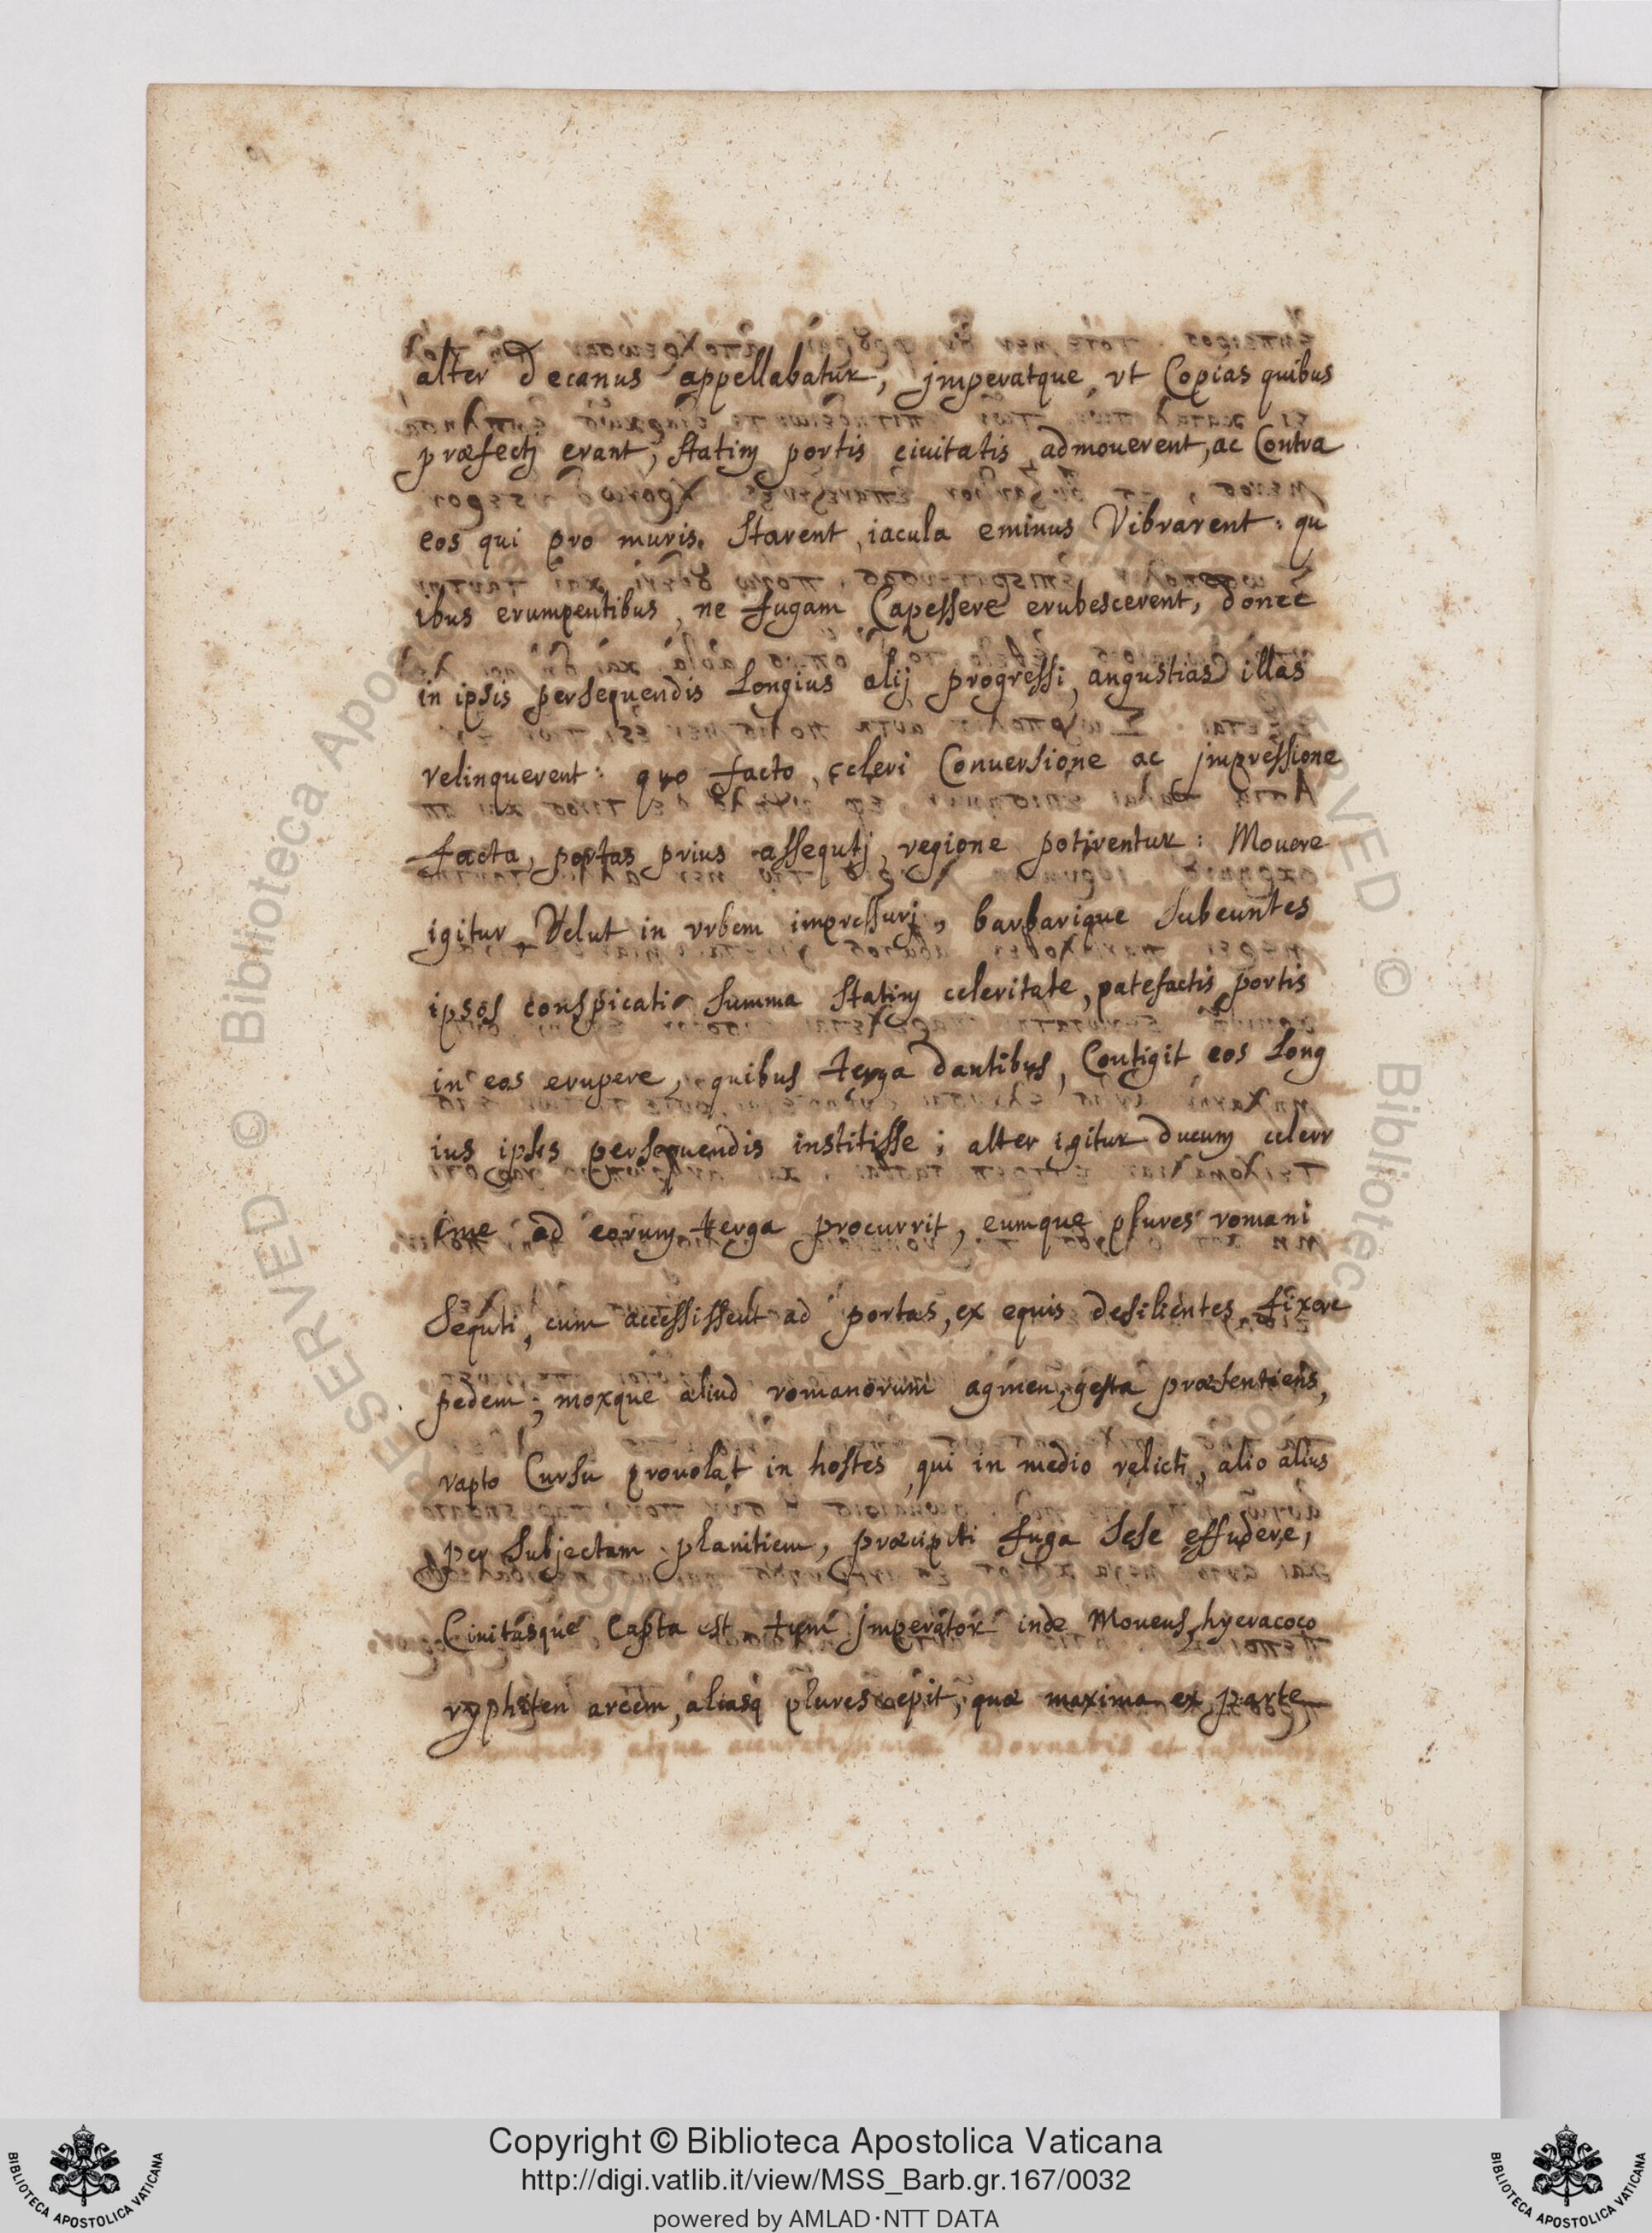 alter Decanus appellabatur, jmperatque vt Copias quibus
præfectj erant, statim portis ciuitatis admouerent, ac Contra
eos qui pro muris starent, iacula eminus Vibrarent: qu
ibus erumpentibus, ne fugam Capessere erubescerent, donec
in ipsis persequendis Longius alij progressi, angustias illas
relinquerent: quo facto, celeri Conuersione ac jmpressione
facta, portas prius assequtj, regione potirentur: Mouere
igitur Velut in vrbem impressurj, barbarique subeuntes
ipsos conspicati summa statim celeritate, patefactis portis
in eos erupere, quibus terga dantibus, Contigit eos Long
ius ipsis persequendis institisse; alter igitur ducum celerr
ime ad eorum terga procurrit, eumque plures romani
Sequti, cum accessissent ad portas, ex equis desilientes fixere
pedem; moxque aliud romanorum agmen, gesta præsentiens,
rapto Cursu prouolat in hostes, qui in medio relicti, alio alius
per subjectam planitiem, præcipiti fuga sese effudere,
Ciuitasque Capta est. tum jmperator inde Mouens, hyeracoco
ryphiten arcem, aliasq plures cepit, quæ maxima ex parte
RESERVED © Biblioteca Apostolica Vaticana
Copyright © Biblioteca Apostolica Vaticana
http://digi.vatlib.it/view/MSS_Barb.gr.167/0032
powered by AMLAD·NTT DATA
BIBLIOTECA APOSTOLICA VATICANA
BIBLIOTECA APOSTOLICA VATICANA